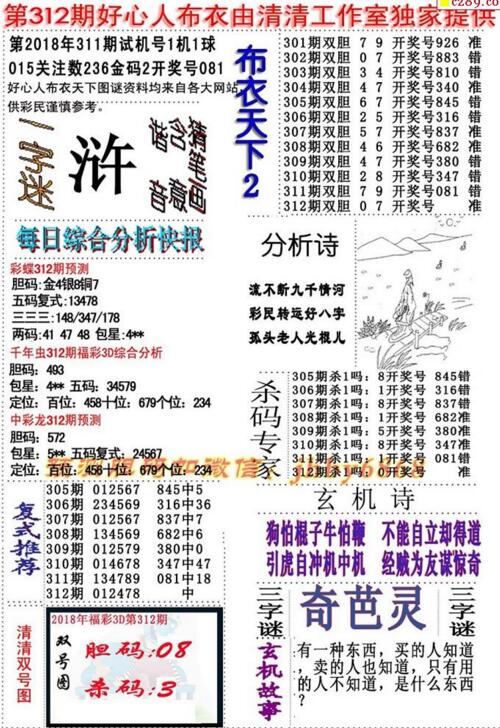 c289.c
第312期好心人布衣由清清工作室独家提供
第2018年311期试机号1机1球
015关注数236金码2开奖号081
好心人布衣天下图谜资料均来自各大网站
供彩民谨慎参考。
一字迷
浒
猜笔画
含意
谐音
每日综合分析快报
布衣天下2
301期双胆 7 9 开奖号926 准
302期双胆 0 7 开奖号883 错
303期双胆 3 4 开奖号810 错
304期双胆 0 7 开奖号340 准
305期双胆 4 6 开奖号845 准
306期双胆 2 5 开奖号316 错
307期双胆 6 7 开奖号837 准
308期双胆 4 6 开奖号682 准
309期双胆 4 7 开奖号380 错
310期双胆 2 8 开奖号347 错
311期双胆 7 9 开奖号081 错
312期双胆 0 7 开奖号 准
彩蝶312期预测
胆码:金4银8铜7
五码复式:13478
三三三:148/347/178
两码:41 47 48 包星:4**
千年虫312期福彩3D综合分析
胆码: 493
包星: 4** 五码: 34579
定位: 百位: 458十位: 679个位: 234
中彩龙312期预测
胆码: 572
包星: 5** 五码复式: 24567
定位: 百位: 458十位: 679个位: 234
分析诗
流不断九千情河
彩民转运好八字
孤头老人光棍儿
杀码专家
305期杀1吗: 8开奖号 845错
306期杀1吗: 1开奖号 316错
307期杀1吗: 8开奖号 837错
308期杀1吗: 1开奖号 682准
309期杀1吗: 5开奖号 380准
310期杀1吗: 8开奖号 347准
311期杀1吗: 1开奖号 081错
312期杀1吗: 0开奖号 准
复式推荐
305期 012567 845中5
306期 234569 316中36
307期 012567 837中7
308期 134569 682中6
309期 012579 380中0
310期 014678 347中47
311期 134789 081中18
312期 012478 中
玄机诗
狗怕棍子牛怕鞭 不能自立却得道
引虎自冲机中机 经贼为友谋惊奇
清清双号图
2018年福彩3D第312期
双号图
胆码:08
杀码:3
三字谜
奇芭灵
三字谜
玄机故事
有一种东西,买的人知道
,卖的人也知道,只有用
的人不知道,是什么东西
?